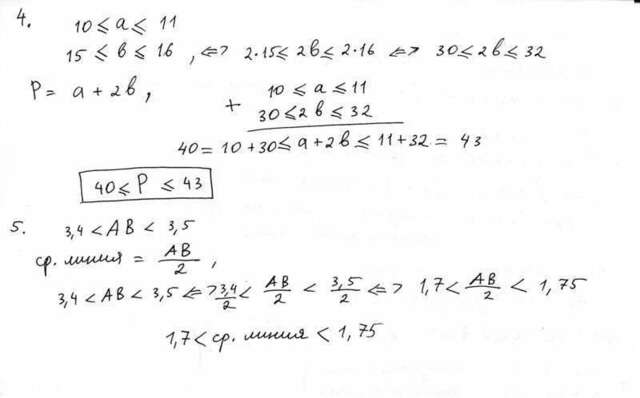 4. 10 ⩽ a ⩽ 11
15 ⩽ b ⩽ 16 , ⇔ 2·15 ⩽ 2b ⩽ 2·16 ⇔ 30 ⩽ 2b ⩽ 32
P = a + 2b ,
10 ⩽ a ⩽ 11
+
30 ⩽ 2b ⩽ 32
40 = 10 + 30 ⩽ a + 2b ⩽ 11 + 32 = 43
40 ⩽ P ⩽ 43
5. 3,4 < AB < 3,5
ср. линия = AB/2 ,
3,4 < AB < 3,5 ⇔ 3,4/2 < AB/2 < 3,5/2 ⇔ 1,7 < AB/2 < 1,75
1,7 < ср. линия < 1,75